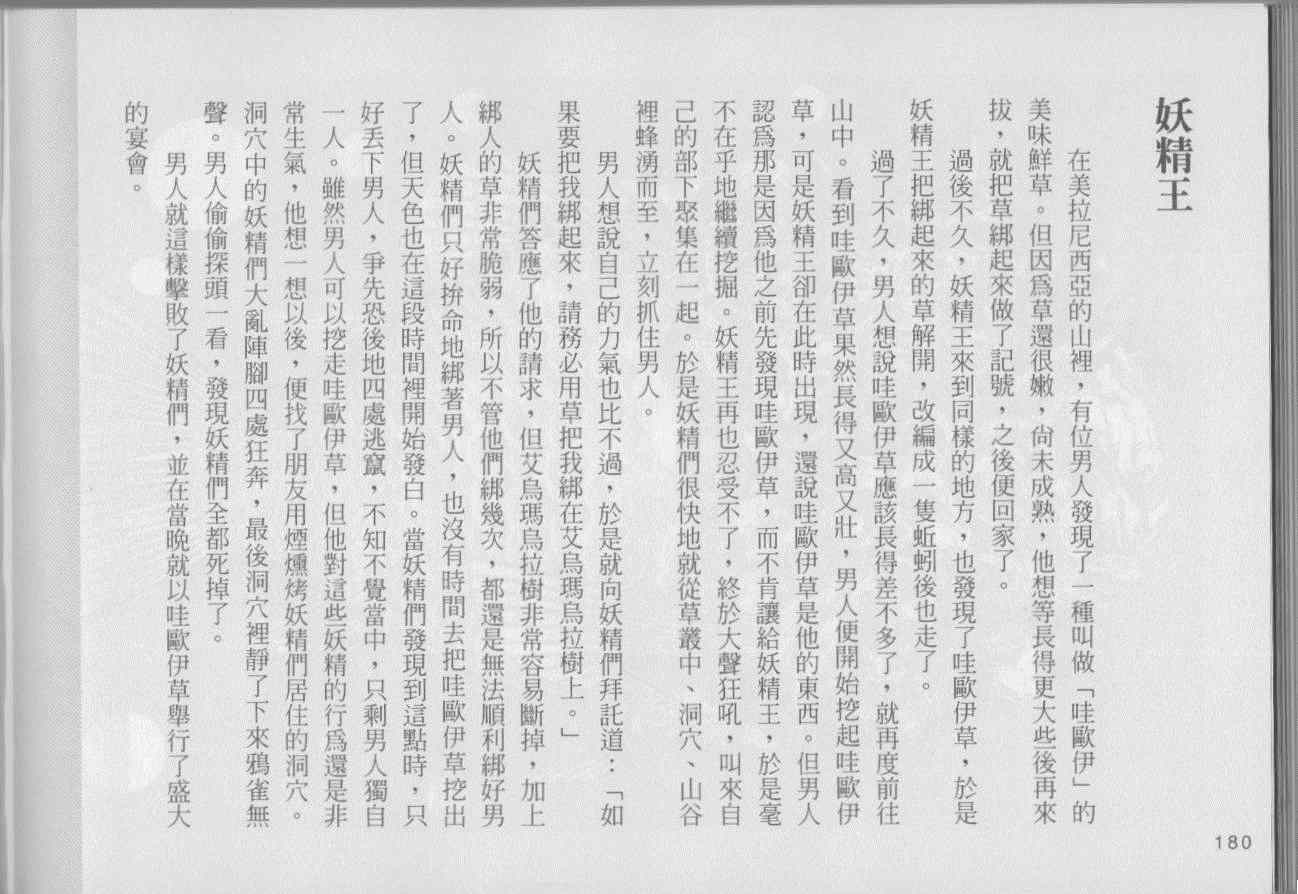 妖精王
在美拉尼西亞的山裡，有位男人發現了一種叫做「哇歐伊」的
美味鮮草。但因爲草還很嫩，尙未成熟，他想等長得更大些後再來
拔，就把草綁起來做了記號，之後便回家了。
過後不久，妖精王來到同樣的地方，也發現了哇歐伊草，於是
妖精王把綁起來的草解開，改編成一隻蚯蚓後也走了。
過了不久，男人想說哇歐伊草應該長得差不多了，就再度前往
山中。看到哇歐伊草果然長得又高又壯，男人便開始挖起哇歐伊
草，可是妖精王卻在此時出現，還說哇歐伊草是他的東西。但男人
認爲那是因爲他之前先發現哇歐伊草，而不肯讓給妖精王，於是毫
不在乎地繼續挖掘。妖精王再也忍受不了，終於大聲狂吼，叫來自
己的部下聚集在一起。於是妖精們很快地就從草叢中、洞穴、山谷
裡蜂湧而至，立刻抓住男人。
男人想說自己的力氣也比不過，於是就向妖精們拜託道：「如
果要把我綁起來，請務必用草把我綁在艾烏瑪烏拉樹上。」
妖精們答應了他的請求，但艾烏瑪烏拉樹非常容易斷掉，加上
綁人的草非常脆弱，所以不管他們綁幾次，都還是無法順利綁好男
人。妖精們只好拚命地綁著男人，也沒有時間去把哇歐伊草挖出
了，但天色也在這段時間裡開始發白。當妖精們發現到這點時，只
好丟下男人，爭先恐後地四處逃竄，不知不覺當中，只剩男人獨自
一人。雖然男人可以挖走哇歐伊草，但他對這些妖精的行爲還是非
常生氣，他想一想以後，便找了朋友用煙燻烤妖精們居住的洞穴。
洞穴中的妖精們大亂陣腳四處狂奔，最後洞穴裡靜了下來鴉雀無
聲。男人偷偷探頭一看，發現妖精們全都死掉了。
男人就這樣擊敗了妖精們，並在當晚就以哇歐伊草舉行了盛大
的宴會。
180